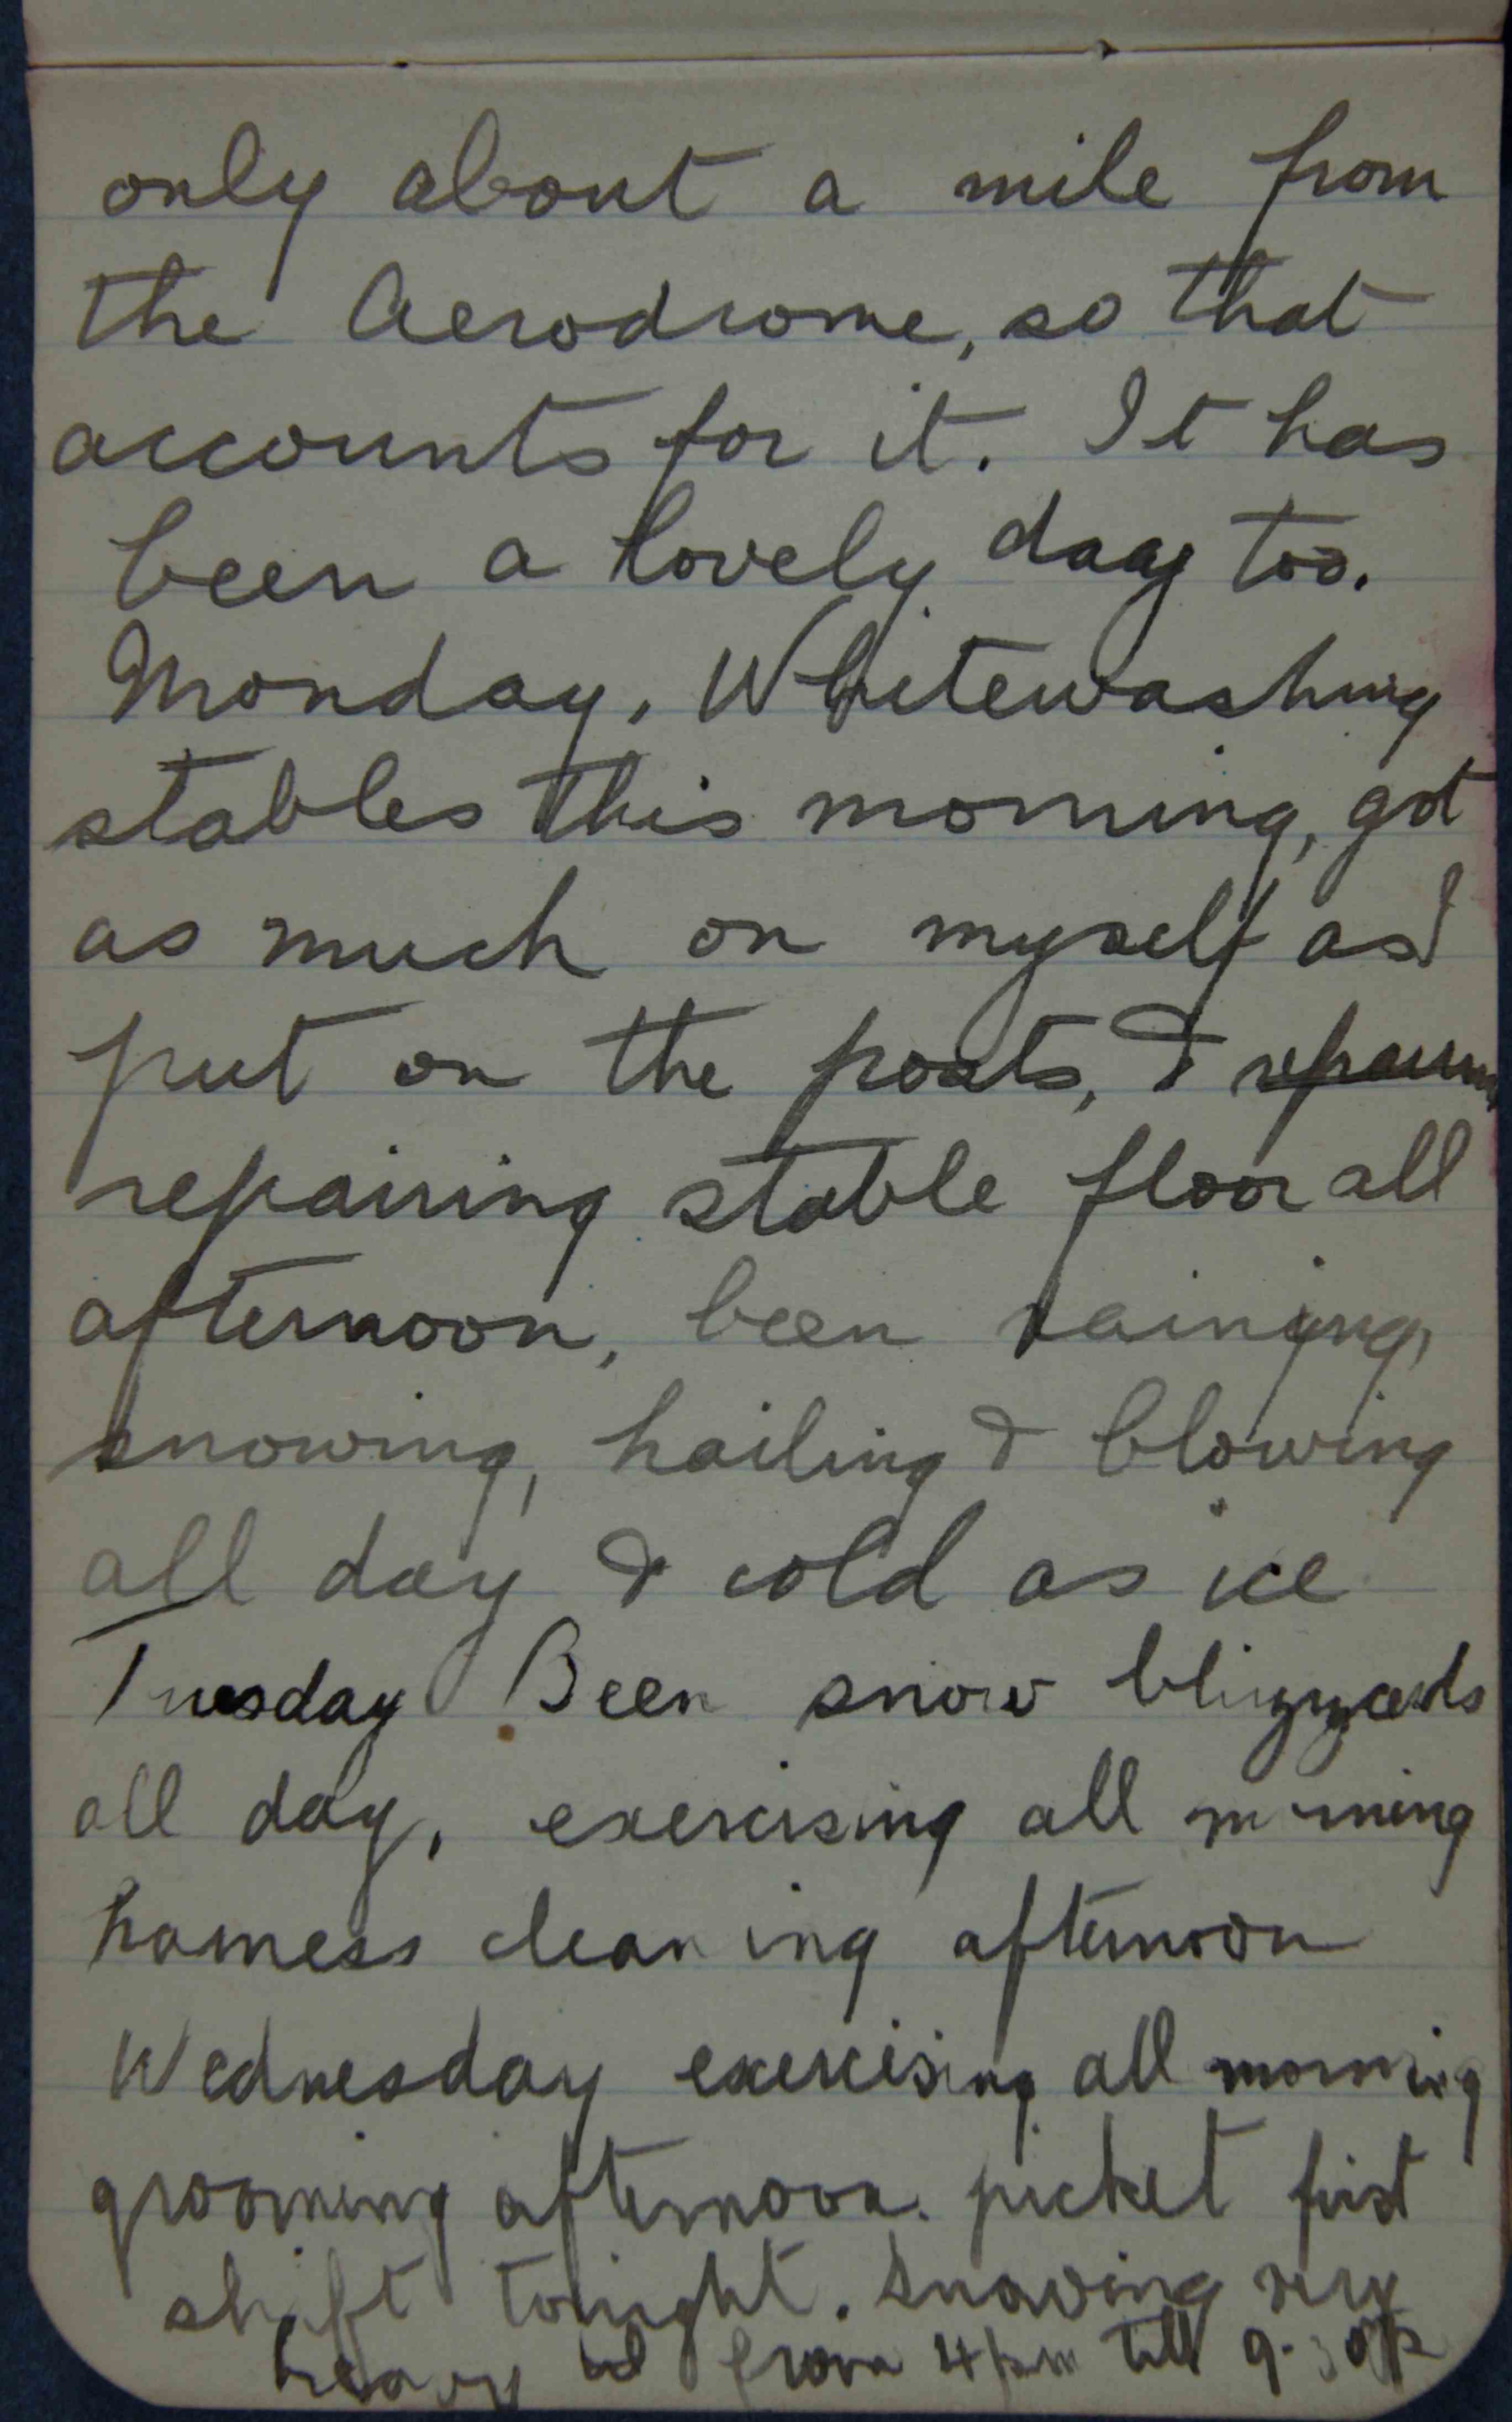 only about a mile from
the Aerodrome, so that
accounts for it. It has
been a lovely day too.
Monday, Whitewashing
stables this morning, got
as much on myself as I
put on the posts, &
repairing stable floor all
afternoon, been raining,
snowing, hailing & blowing
all day & cold as ice
Tuesday Been snow blizzards
all day, exercising all morning
harness cleaning afternoon
Wednesday exercising all morning
grooming afternoon. picket first
shift tonight. Snowing very
heavy from 4 pm till 9.30